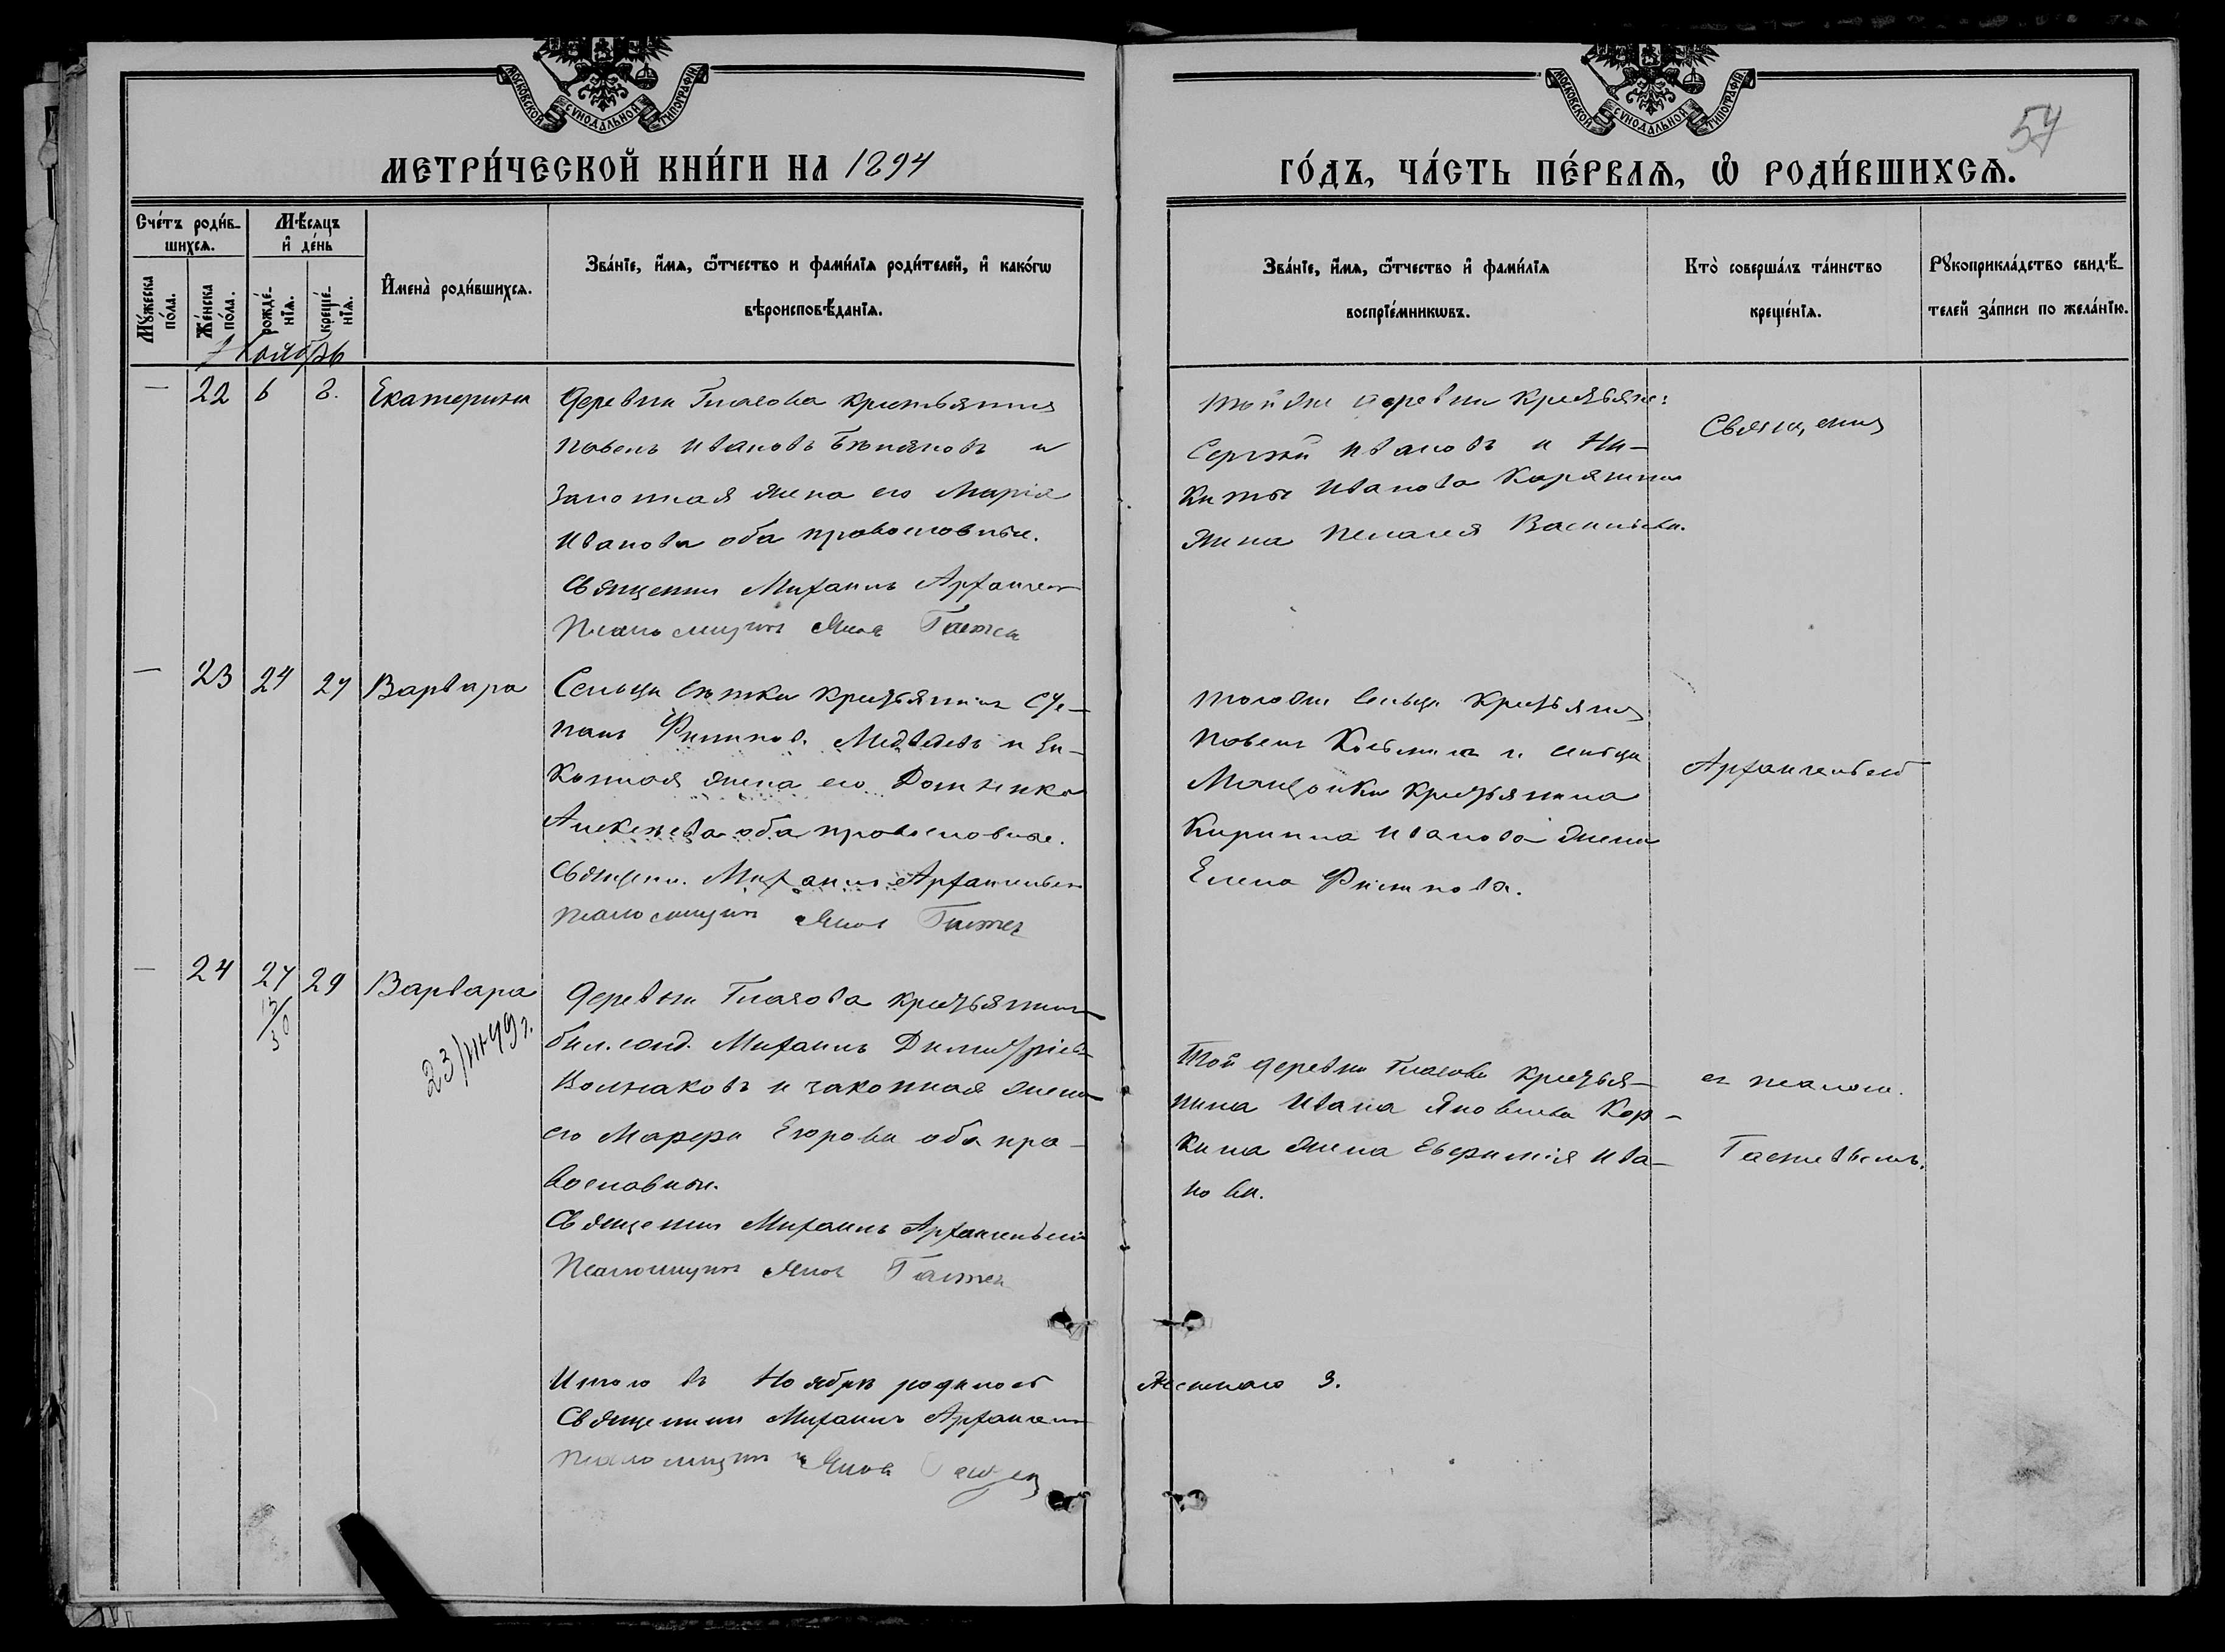 МОСКОВСКОЙ СѴНОДАЛЬНОЙ ТИПОГРАФІИ
МЕТРИ́ЧЕСКОЙ КНИ́ГИ НА 1894
Сче́тъ роди́в-
шихся.
Мѣ́сяцъ
и҆ де́нь
Мꙋ́жеска
по́ла.
Же́нска
по́ла.
рожде́-
нїя.
креще́-
нїя.
И҆мена̀ роди́вшихся.
Зва́нїе, и҆́мя, ѻ҆́тчество и фами́лїя роди́телей, и҆ како́гѡ
вѣроисповѣ́данїя.
Ноябрь
— 22 6 8. Екатерина
Деревни Глазова крестьянинъ
Павелъ Ивановъ и
законная жена его Марія
Иванова оба православные.
Священник Михаилъ Архангел
Псаломщикъ Яков
— 23 24 27 Варвара
Сельца крестьянинъ Сте-
панъ Филипов. Медвдевъ и за-
конная жена его Домника
Алексѣева оба православные.
Священн. Михаилъ Архангельск
Псаломщикъ Яков
— 24 27 29 Варвара
13/30
23/III 49 г.
Деревни Глазова крестьянинъ
бил. солд. Михаилъ Димитріев
Волнаковъ и законная жена
его Марфа Егорова оба пра-
вославные.
Священник Михаилъ Архангельскій
Псаломщикъ Яков
Итого въ Ноябрѣ родилось
Священник Михаилъ Архангел
Псаломщикъ Яков
МОСКОВСКОЙ СѴНОДАЛЬНОЙ ТИПОГРАФІИ
57
ГО́ДЪ, ЧА́СТЬ ПЕ́РВАѦ, Ѡ҆ РОДИ́ВШИХСѦ.
Зва́нїе, и҆́мя, ѻ҆́тчество и҆ фами́лїя
воспрїе́мникѡвъ.
Кто̀ соверша́лъ та́инство
креще́нїя.
Рꙋкоприкла́дство свидѣ́-
телей за́писи по жела́нїю.
Той же деревни крестьяне:
Сергѣй Ивановъ и Ни-
киты Иванова Корякина
жена Пелагея Васильева.
Священник
Того же сельца крестьянин
Павелъ и сельца
крестьянина
Кирилла Иванова жена
Елена Филипова.
Архангельскій
Той деревни Глазова крестья-
нина Ивана Яковлева Кор-
кина жена Евфимія Ива-
нова.
съ псалом.
Женскаго 3.